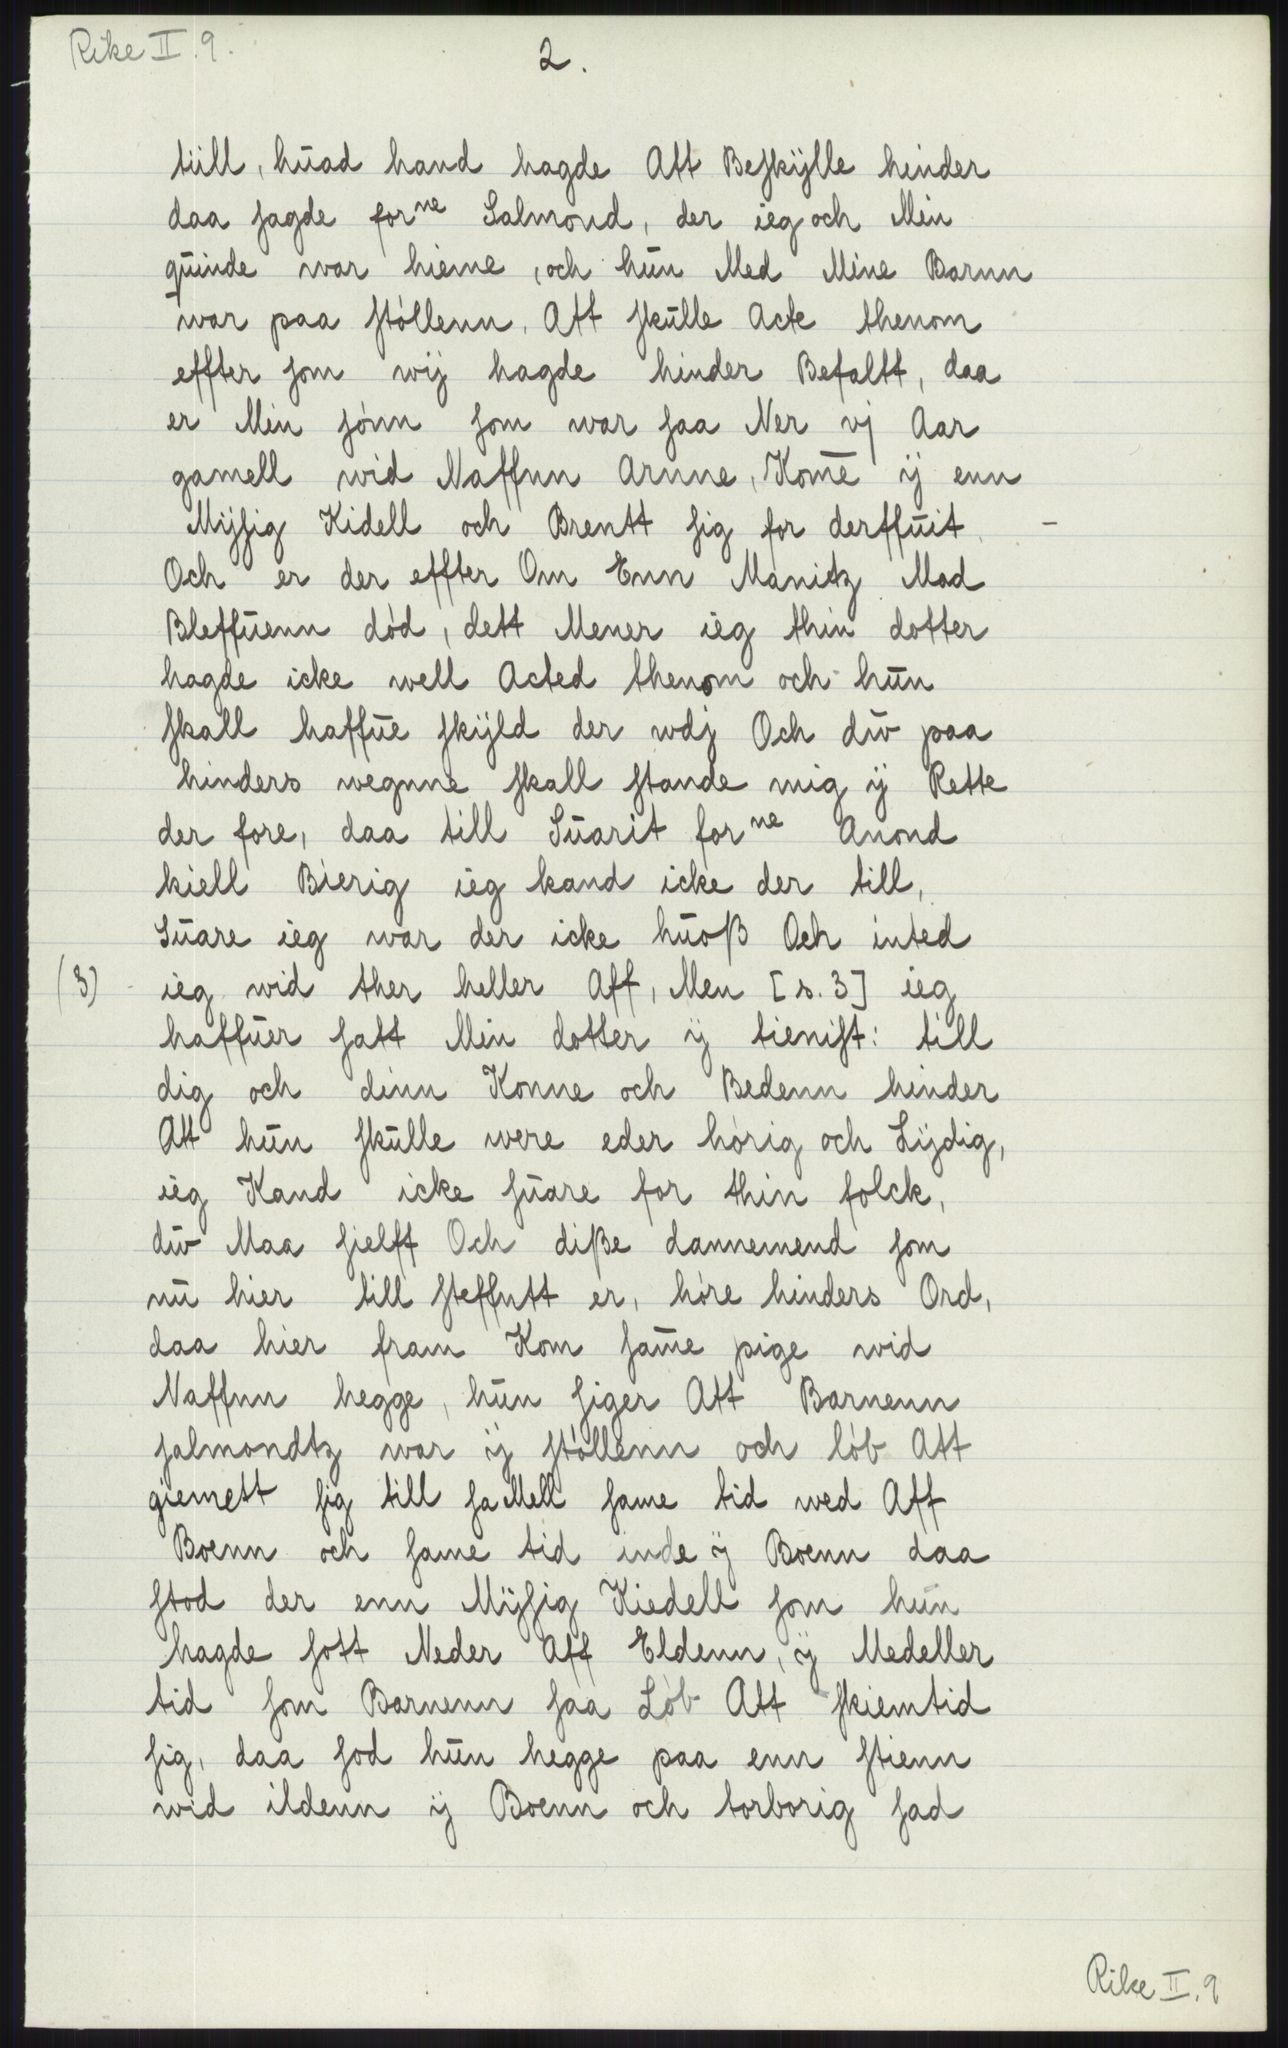 Rike II.9.
2.
tiill, huad hand hagde Att Beskÿlle hinder
daa sagde forne Salmond, der ieg och Min
quinde war hieme, och hun Med Mine Barnn
war paa stóllenn, Att skulle Acte thenom
effter som wij hagde hinder Befaltt, daa
er Min sónn som war saa Ner vj Aar
gamell wid Naffnn Arnne, Kom̄e ÿ enn
Mÿsig Kidell och Brentt sig for derffuit
Och er der effter Om Enn Manitz Mad
Bleffuenn död, dett Mener ieg thin dotter
hagde icke well Acted thenom och hun
skall haffue skÿld der wdj Och dw paa
hinders wegnne skall stande mig ÿ Rette
der fore, daa till Suarit forne Anond
kiell Bierig ieg kand icke der till,
Suare ieg war der icke huoß Och inted
(3) ieg wid ther heller Aff, Men [s. 3] ieg
haffuer satt Min dotter ÿ tienist: till
dig och dinn Konne och Bedenn hinder
Att hun skulle were eder hórig och Lÿdig,
ieg Kand icke suare for thin folck,
dw Maa sielff Och diße dannemend som
nu hier till steffntt er, hóre hinders Ord,
daa hier fram Kom sam̄e pige wid
Naffnn hegge, hun siger Att Barnenn
salmondtz war ÿ stóllenn och lób Att
giemett sig till saMell same tid wed Aff
Boenn och same tid inde ÿ Boenn daa
stod der enn Mÿsig Kiedell som hun
hagde sott Neder Aff Eldenn, ÿ Medeller
tid som Barnenn saa Lób Att skiemtid
sig, daa sod hun hegge paa enn stienn
wid ildenn ÿ Boenn och torborig sad
Rike II.9